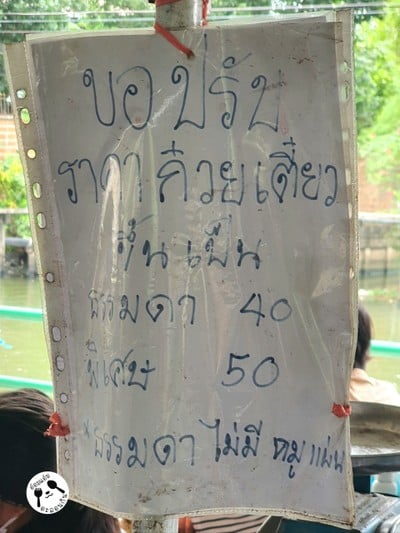 ขอปรับ
ราคาก๋วยเตี๋ยว
ขึ้นเป็น
ธรรมดา 40
พิเศษ 50
*ธรรมดา ไม่มี หมูแผ่น